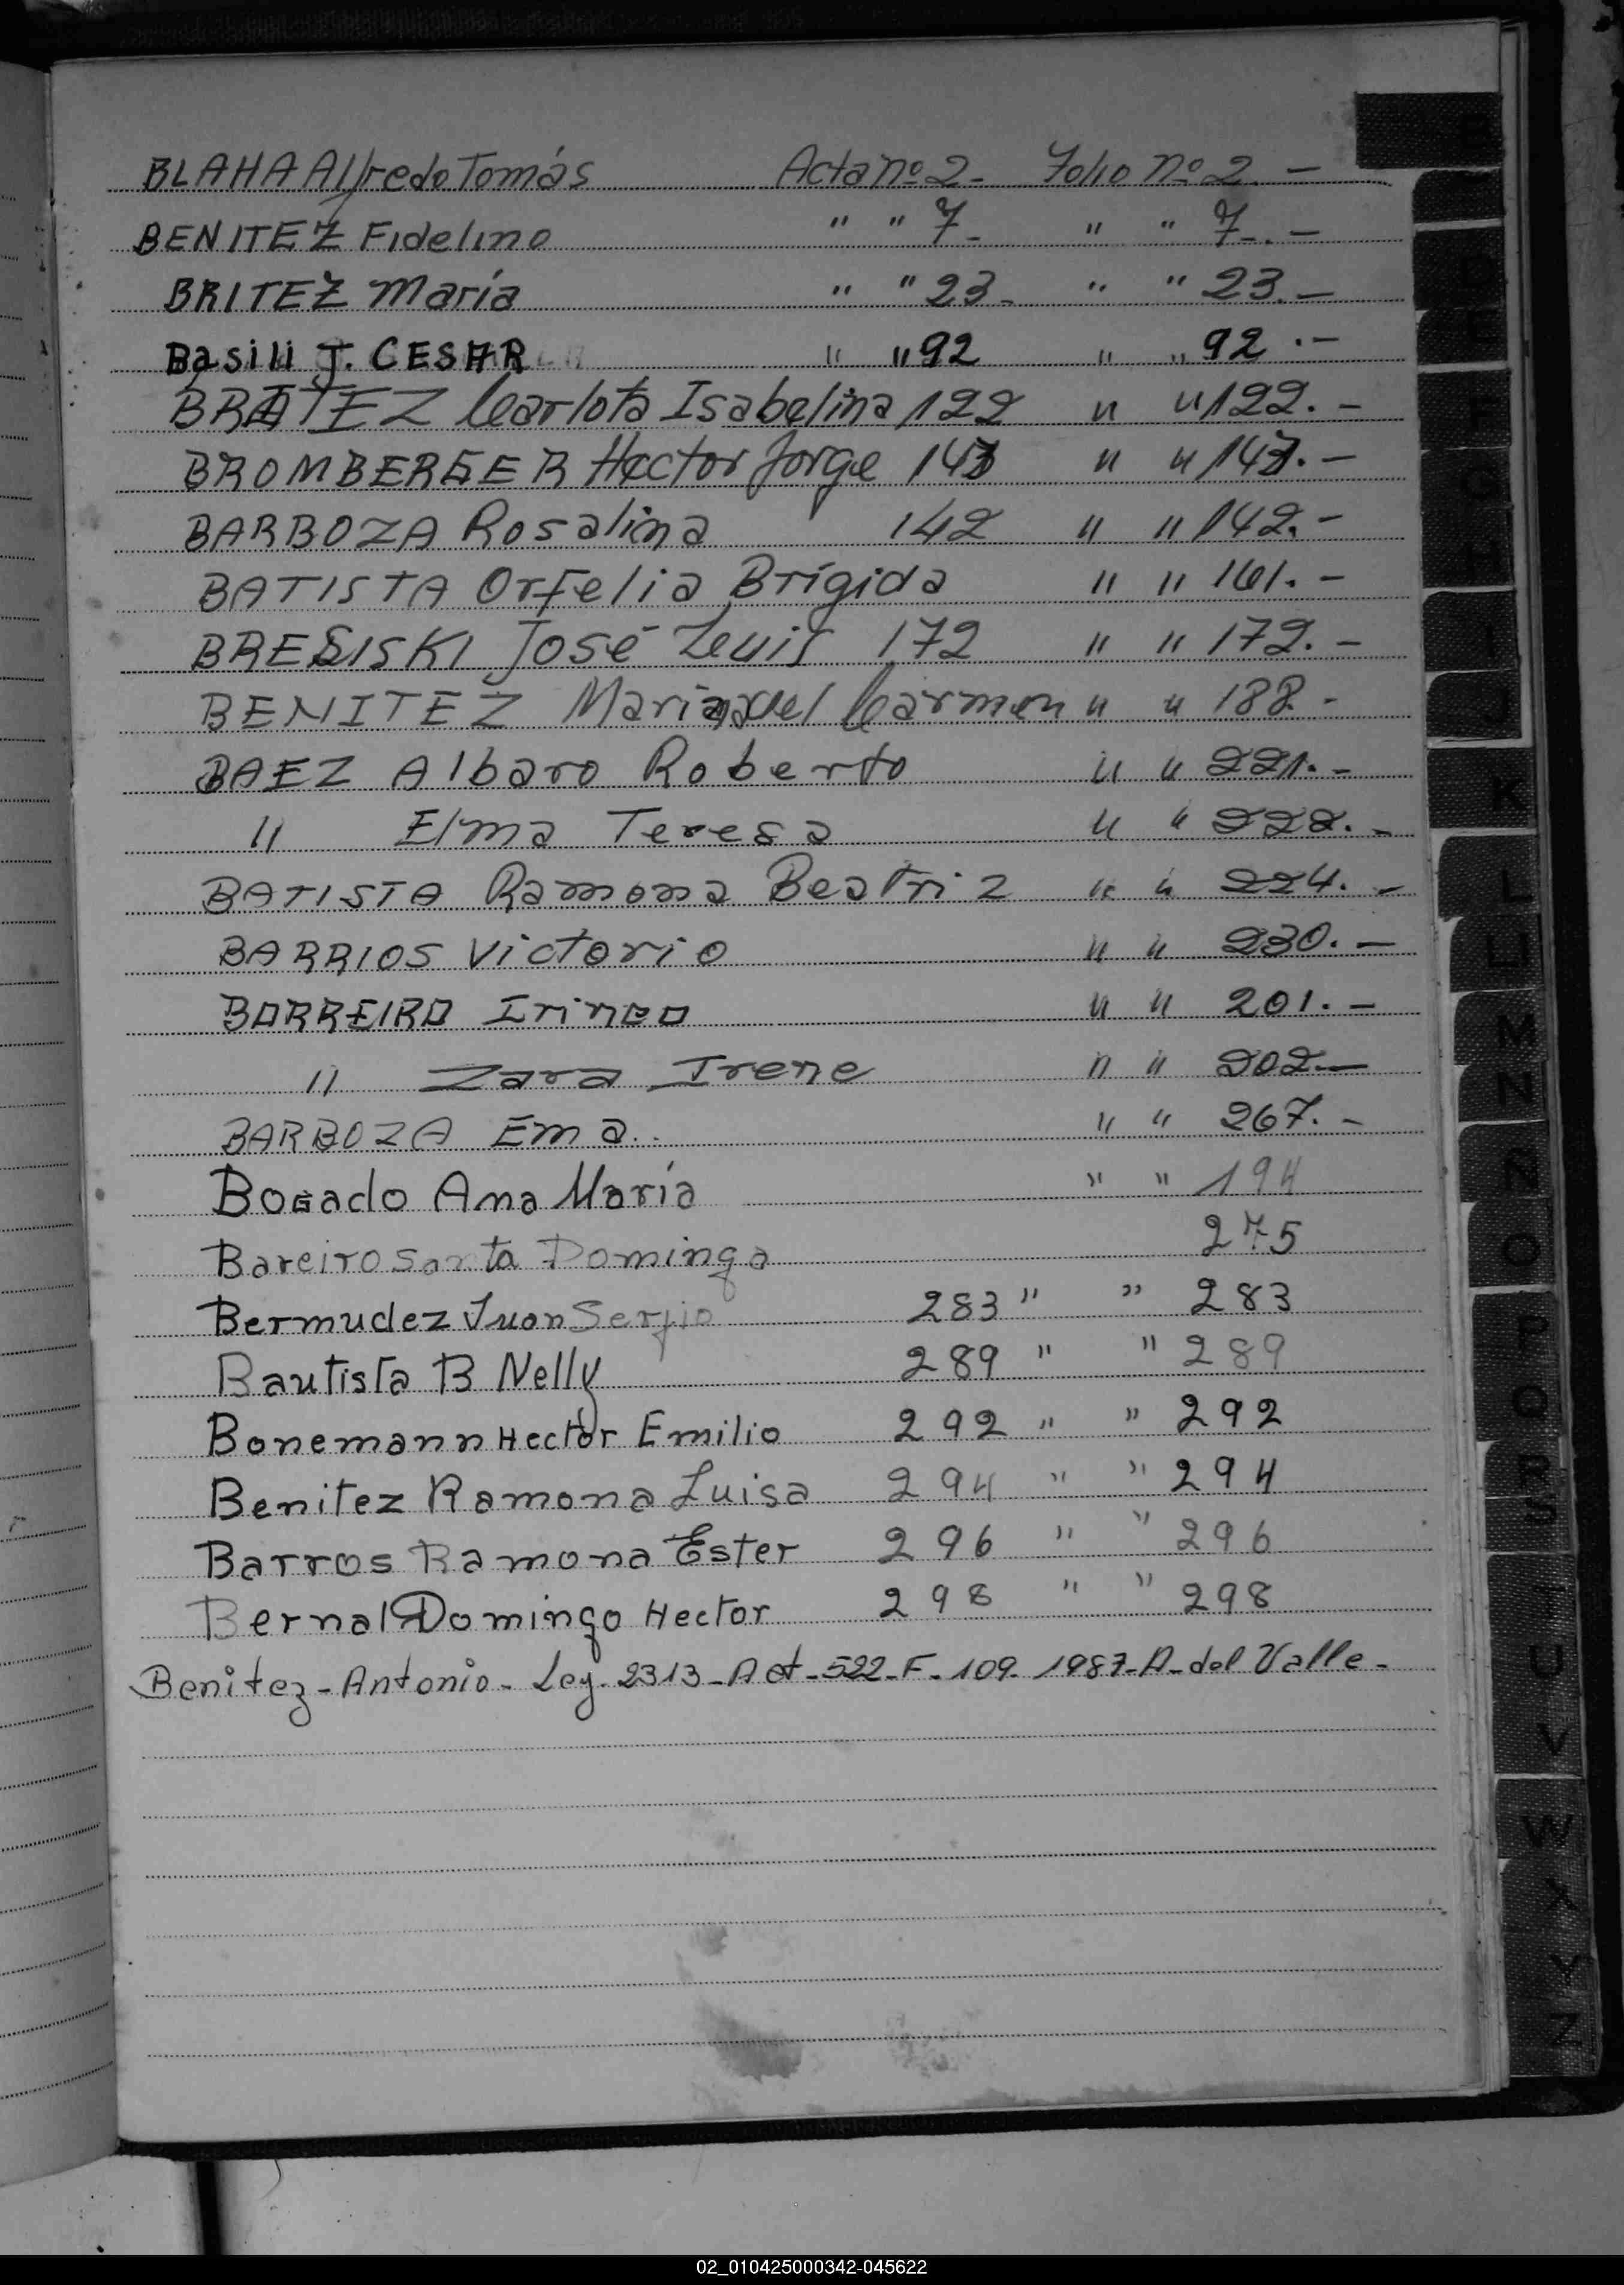 BLAHA Alfredo Tomás Acta nº 2- Folio nº 2. -
BENITEZ Fidelino " " 7- " " 7-. -
BRITEZ María " " 23- " " 23. -
Basili J. CESAR " " 92 " " 92 . -
Carlota Isabelina 122 " " 122. -
BROMBERGER Hector Jorge " "
BARBOZA Rosalina 142 " " 142. -
BATISTA Orfelia Brígida " " 161. -
José Luis 172 " " 172. -
BENITEZ Carmen " " 188. -
BAEZ Albaro Roberto " " 221. -
" Elma Teresa " " 222. -
BATISTA Ramona Beatriz " " 224. -
BARRIOS Victorio " " 230. -
BARREIRO Irineo " " 201. -
" Zara Irene " " 202. -
BARBOZA Ema.. " " 267. -
Bogado Ana María " " 194
Bareiro Santa Dominga 275
Bermudez Juan Sergio 283 " " 283
Bautista B Nelly 289 " " 289
Bonemann Hector Emilio 292 " " 292
Benitez Ramona Luisa 294 " " 294
Barros Ramona Ester 296 " " 296
Bernal Domingo Hector 298 " " 298
Benitez - Antonio - Ley. 2313 - Act - 522 - F - 109 - 1987 - A - del Valle -
B
D
E
F
G
H
I
J
K
L
LL
M
N
Ñ
O
P
Q
R
S
T
U
V
W
X
Y
Z
02_010425000342-045622